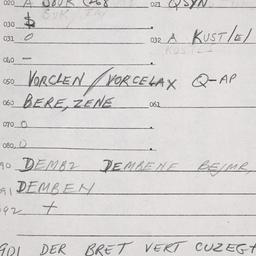 020 A 021 QSYN
030 $
031 0 032 A KUST/E/
040 —
050 VORCLEN / VORCELAX Q-AP
060 BERE, ZENE 061
070 0
080, 0
90 DEMBZ DEMBENE BEJMR,
091 DEMBEN
092 +
901 DER BRET VERT CUZEGT